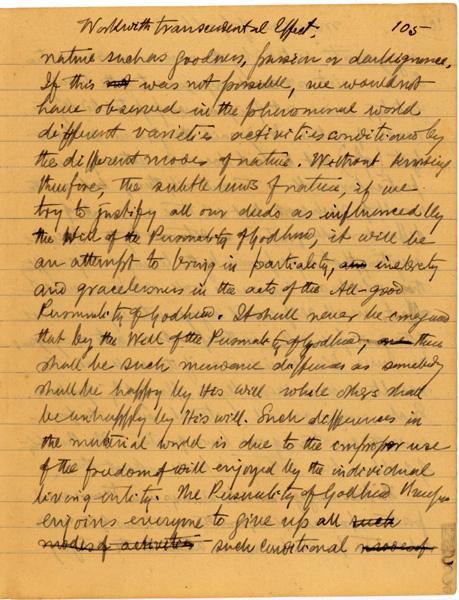 Work with transcendental Effect. 105
nature such as goodness, passion or darkignorence.
If this not was not possible, we would not
have observed in the phenomenal world
different varieties activities conditioned by
the different modes of nature. Without knowing
therefore, the subtle laws of nature, if we
try to justify all our deeds as influenced by
the Will of the Personality of Godhead, it will be
an attempt to bring in partiality, and inebriety
and gracelessness in the acts of the All-good
Personality of Godhead. It shall never be imagined
that by the Will of the Personality of Godhead, there
shall be such mundane differences as somebody
shall be happy by His will while others shall
be unhappy by His will. Such differences in
the material world is due to the improper use
of the freedom of will enjoyed by the individual
living entity. The Personality of Godhead therefore
enjoins everyone to give up all such
modes of activities such conditional modes of